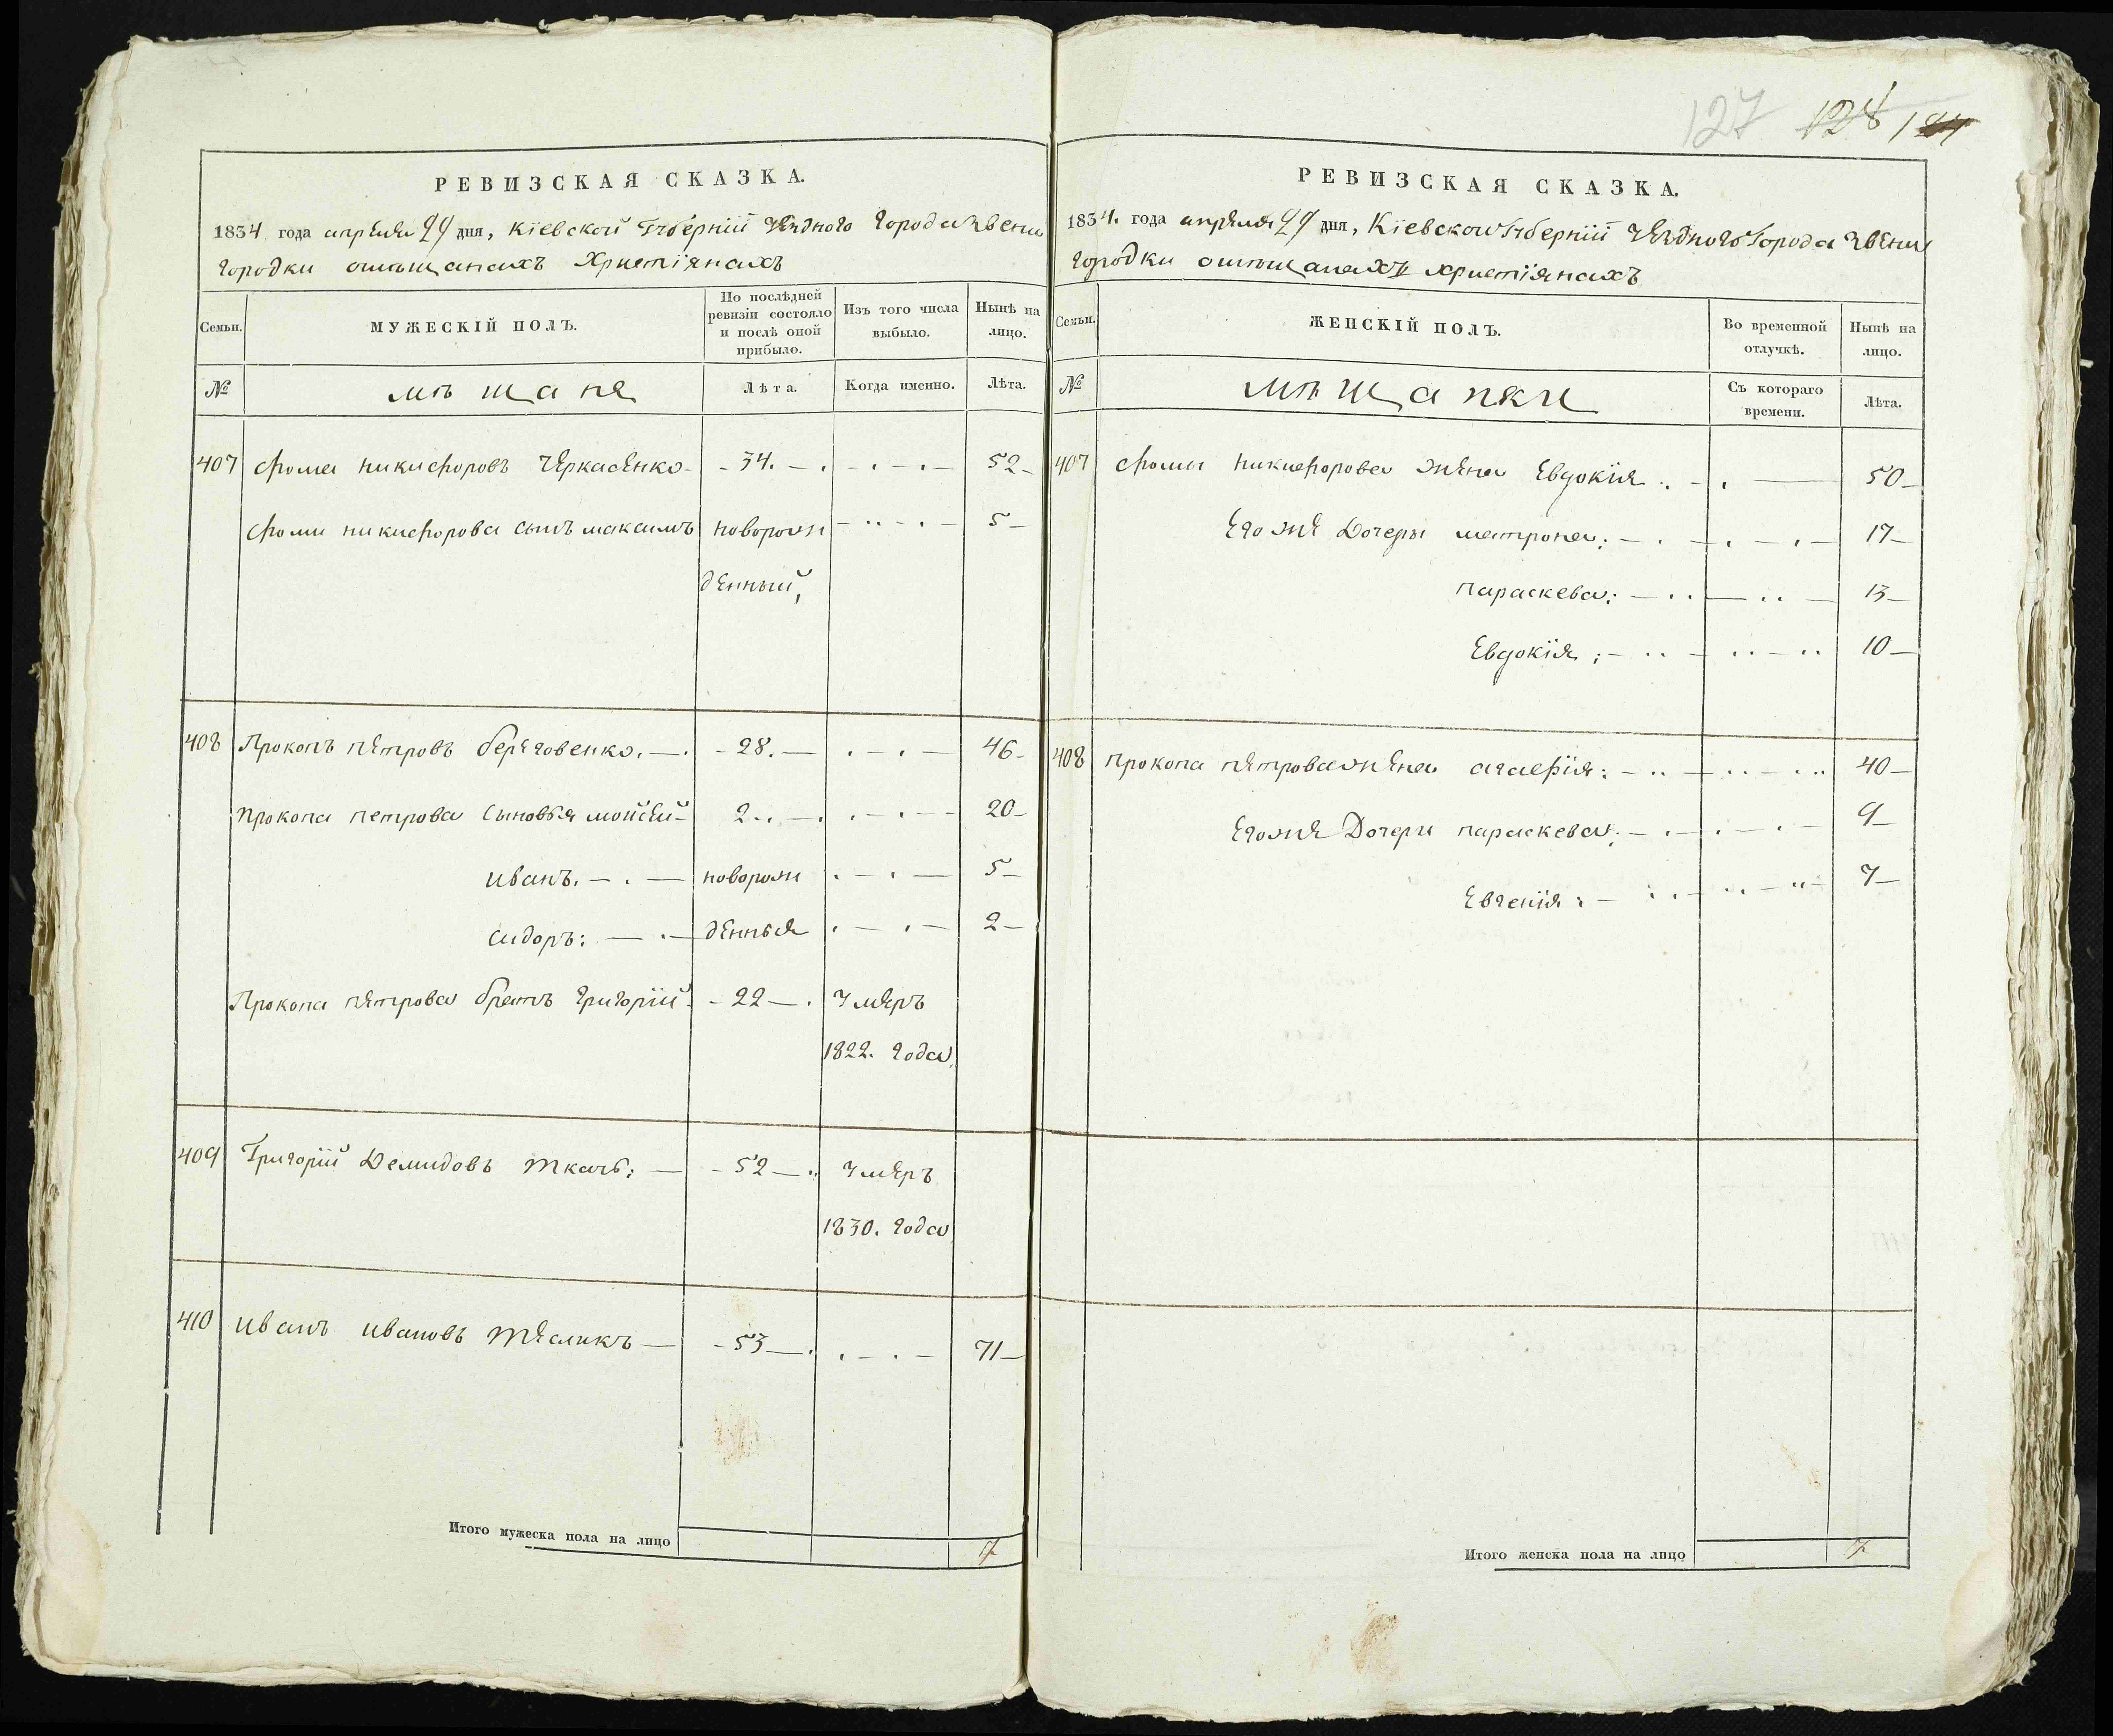 127 128
РЕВИЗСКАЯ СКАЗКА.
1834 года апреля 29 дня, Кіевской Губерніи уезднаго Города Звени
городки омѣщанахъ Христіянахъ
Семьи.
МУЖЕСКІЙ ПОЛЪ.
По послѣдней ревизіи состояло и послѣ оной прибыло.
Изъ того числа выбыло.
Нынѣ на лицо.
№
мѣщане
Лѣта.
Когда именно.
Лѣта.
407 Фома никифоровъ Черкасенко 34. 52
Фоми никифорова сынъ максимъ новорож 5
денный,
408 Прокопъ петровъ береговенко. 28. 46
Прокопа петрова сыновья мойсей 2 20
иванъ. новорож 5
сидоръ: денныя 2
Прокопа петрова братъ григорій 22 умеръ
1822. года
409 Григорій Демидовъ Ткачъ: 52 умеръ
1830. года
410 иванъ ивановъ 53 71
Итого мужеска пола на лицо 7
РЕВИЗСКАЯ СКАЗКА.
1834. года апреля 29 дня, Кіевской Губерніи уезднаго Города Звени
городки омѣщанахъ христіянахъ
Семьи.
ЖЕНСКІЙ ПОЛЪ.
Во временной отлучкѣ.
Нынѣ на лицо.
№
мѣщанки
Съ котораго времени.
Лѣта.
407 Фоми никифорова жена Евдокія 50
Его же Дочери матрона: 17
параскева: 13
Евдокія: 10
408 прокопа петрова жена агафія: 40
Его же Дочери параскева: 9
Евгенія: 7
Итого женска пола на лицо 7